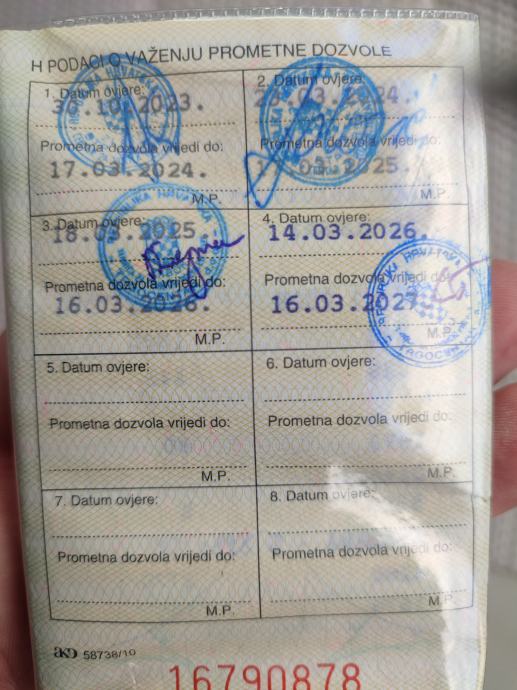 H PODACI O VAŽENJU PROMETNE DOZVOLE
1. Datum ovjere:
30.10.2023.
Prometna dozvola vrijedi do:
17.03.2024.
M.P.
2. Datum ovjere:
.03. 24.
Prometna dozvola vrijedi do:
.03. 025.
M.P.
3. Datum ovjere:
18.03.2025
Prometna dozvola vrijedi do:
16.03.2026.
M.P.
4. Datum ovjere:
14.03.2026.
Prometna dozvola vrijedi do:
16.03.2027
M.P.
REPUBLIKA HRVATSKA
5. Datum ovjere:
Prometna dozvola vrijedi do:
M.P.
6. Datum ovjere:
Prometna dozvola vrijedi do:
M.P.
7. Datum ovjere:
Prometna dozvola vrijedi do:
M.P.
8. Datum ovjere:
Prometna dozvola vrijedi do:
M.P.
akd 58738/10
16790878